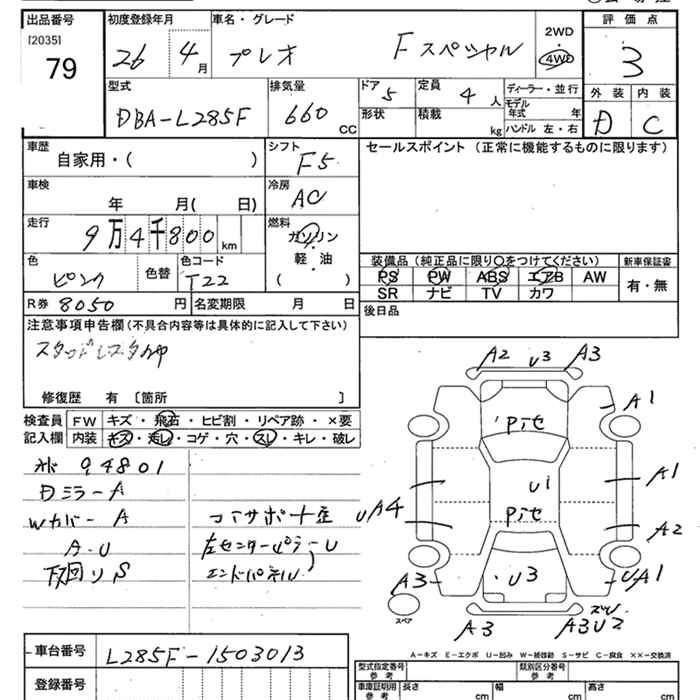 出品番号 初度登録年月 車名・グレード 評価点
[2035] 79
26 4月 プレオ Fスペシャル 2WD 4WD 3
型式 排気量 ドア 5 定員 4人 ディーラー・並行 外装 内装
DBA-L285F 660 CC 形状 積載 kg モデル年式 年 D C
ハンドル 左・右
車歴 シフト セールスポイント (正常に機能するものに限ります)
自家用・( ) F5
車検 冷房
年 月( 日) AC
走行 燃料
9万4千800km ガソリン
軽・油
色 色替 色コード ( ) 装備品 (純正品に限り○をつけてください) 新車保証書
ピンク T22 PS PW ABS エアB AW 有・無
SR ナビ TV カワ
R券 8050円 名変期限 月 日 後日品
注意事項申告欄 (不具合内容等は具体的に記入して下さい)
修復歴 有 〔箇所 〕
検査員 FW キズ・飛石・ヒビ割・リペア跡・×要
記入欄 内装 キズ・汚レ・コゲ・穴・スレ・キレ・破レ
94801
DミラーA
WカバーA コアサポート歪
A・U 左センターピラーU
下廻りS エンドパネル
A2 U3 A3
A1
U1
UA4 A1
A2
A3 U3 UA1
スペア
A3 A3U2
A-キズ E-エクボ U-凹み W-補修跡 S-サビ C-腐食 ××-交換済
車台番号 L285F-1503013 型式指定番号 参考 類別区分番号 参考
登録番号 車庫証明用 参考 長さ cm 幅 cm 高さ cm